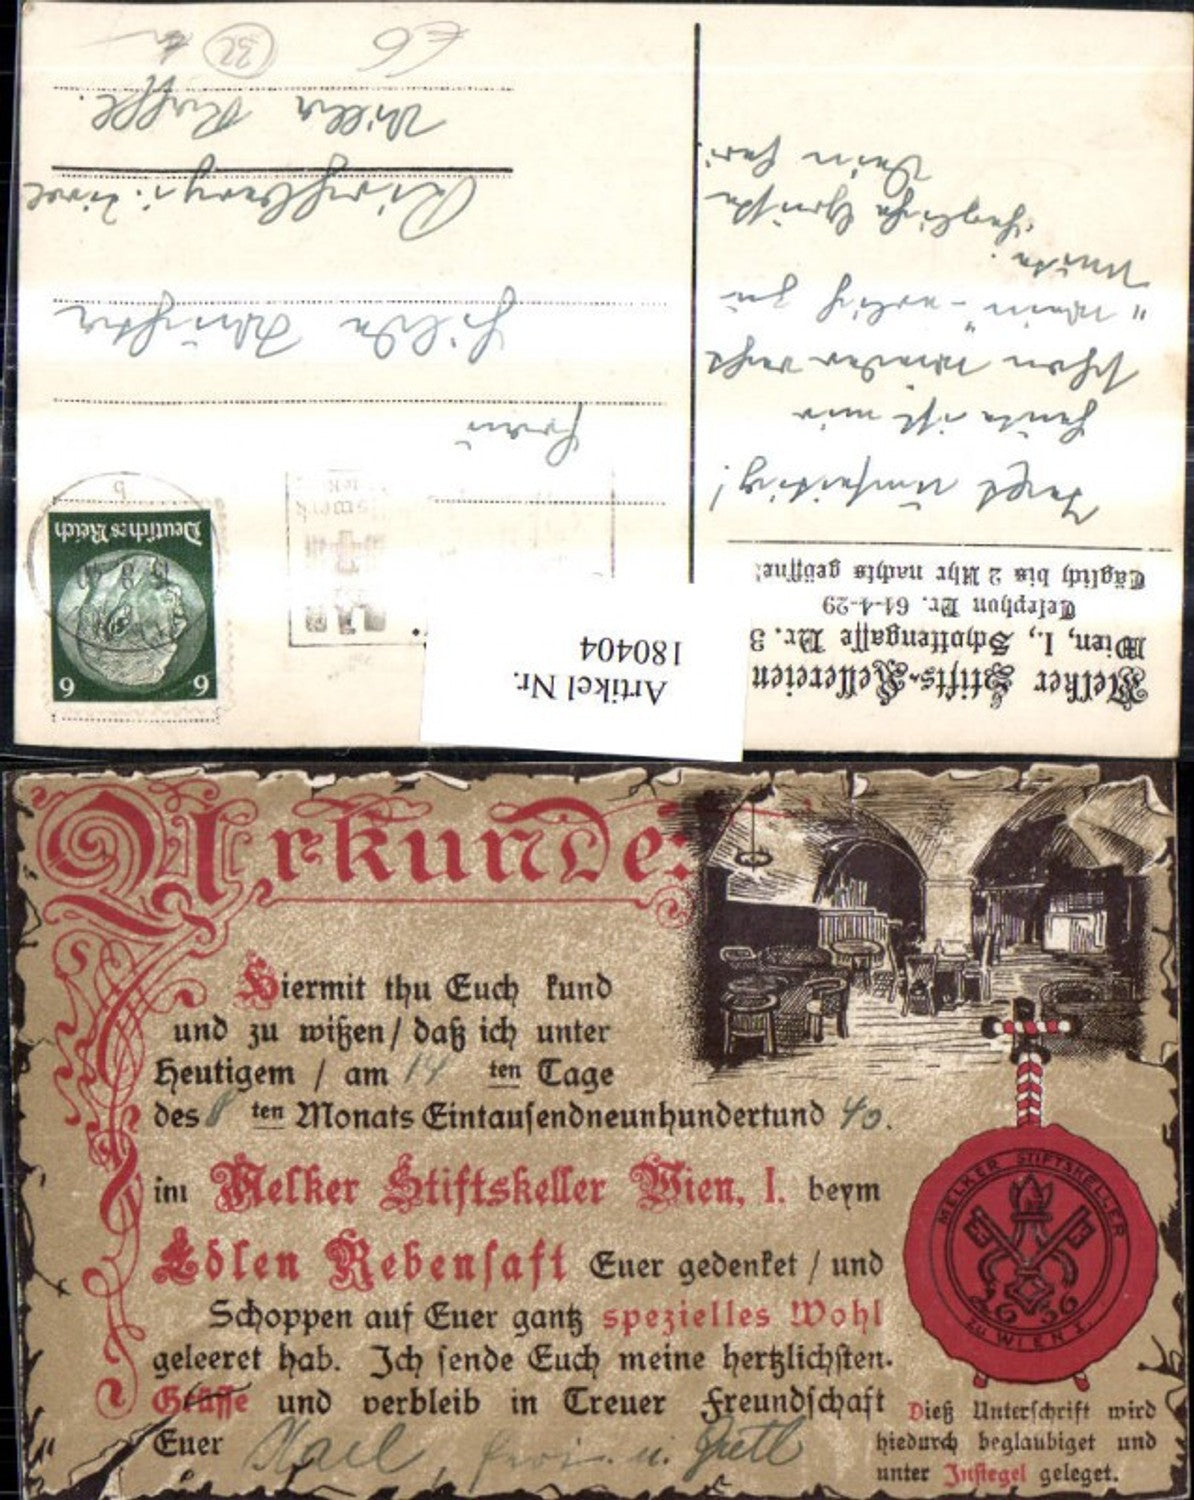 Melker Stifts-Kellereien
Wien, I., Schottengasse Nr. 3
Telephon Nr. 61-4-29
Täglich bis 2 Uhr nachts geöffnet
Heute ist mir
schon wieder recht
"Wein"-erlich zu
Mute.
Herzliche Grüße
Dein Feri.
Artikel Nr.
180404
6 6
Deutsches Reich
b
Frau
Hilda
Kirchberg i. Tirol
Villa
32
Urkunde:
Hiermit thu Euch kund
und zu wißen / daß ich unter
Heutigem / am 14 ten Tage
des 8 ten Monats Eintausendneunhundertund 40.
im Melker Stiftskeller Wien, I. beym
Edlen Rebensaft Euer gedenket / und
Schoppen auf Euer gantz spezielles Wohl
geleeret hab. Ich sende Euch meine hertzlichsten
Grüsse und verbleib in Treuer Freundschaft
Euer Karl, Feri u. Gretl
MELKER STIFTSKELLER
ZU WIEN I.
Dieß Unterschrift wird
hiedurch beglaubiget und
unter Insiegel geleget.